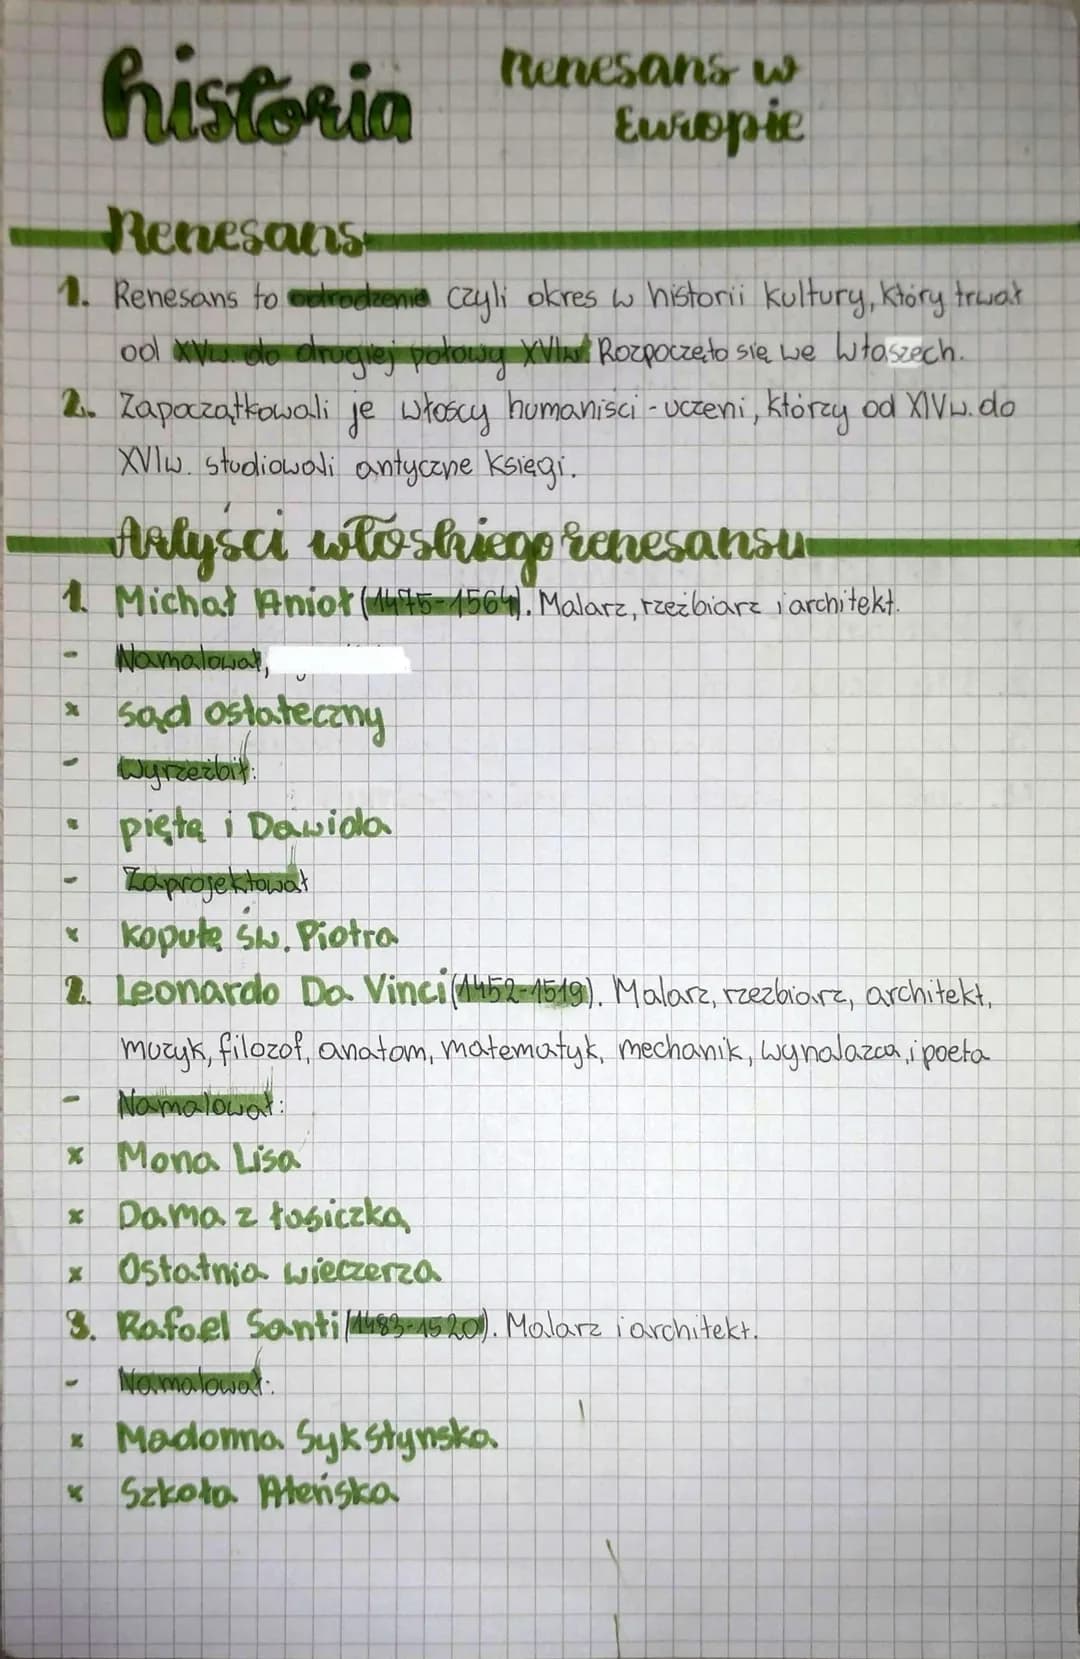 historia
Renesans w
Europie
Renesans
1. Renesans to odrodzenie czyli okres w historii kultury, który trwał
od XVw. do drugiej połowy XVIw. Rozpoczęło się we Włoszech.
2. Zapoczątkowali je włoscy humaniści - uczeni, którzy od XIVw. do
XVIw. studiowali antyczne księgi.
Artyści włoskiego renesansu
1. Michał Anioł (1475-1564). Malarz, rzeźbiarz i architekt.
- Namalował,
x sąd ostateczny
- Wyrzeźbił:
x piętą i Dawida
- Zaprojektował
x kopułę św. Piotra
2. Leonardo Da Vinci (1452-1519). Malarz, rzezbiarz, architekt,
muzyk, filozof, anatom, matematyk, mechanik, wynalazca, i poeta
- Namalował:
x Mona Lisa
x Dama z łasiczką
x Ostatnia wieczerza
3. Rafael Santi (1483-1520). Malarz i architekt.
- Namalował:
x Madonna Sykstyńska
x Szkoła Ateńska